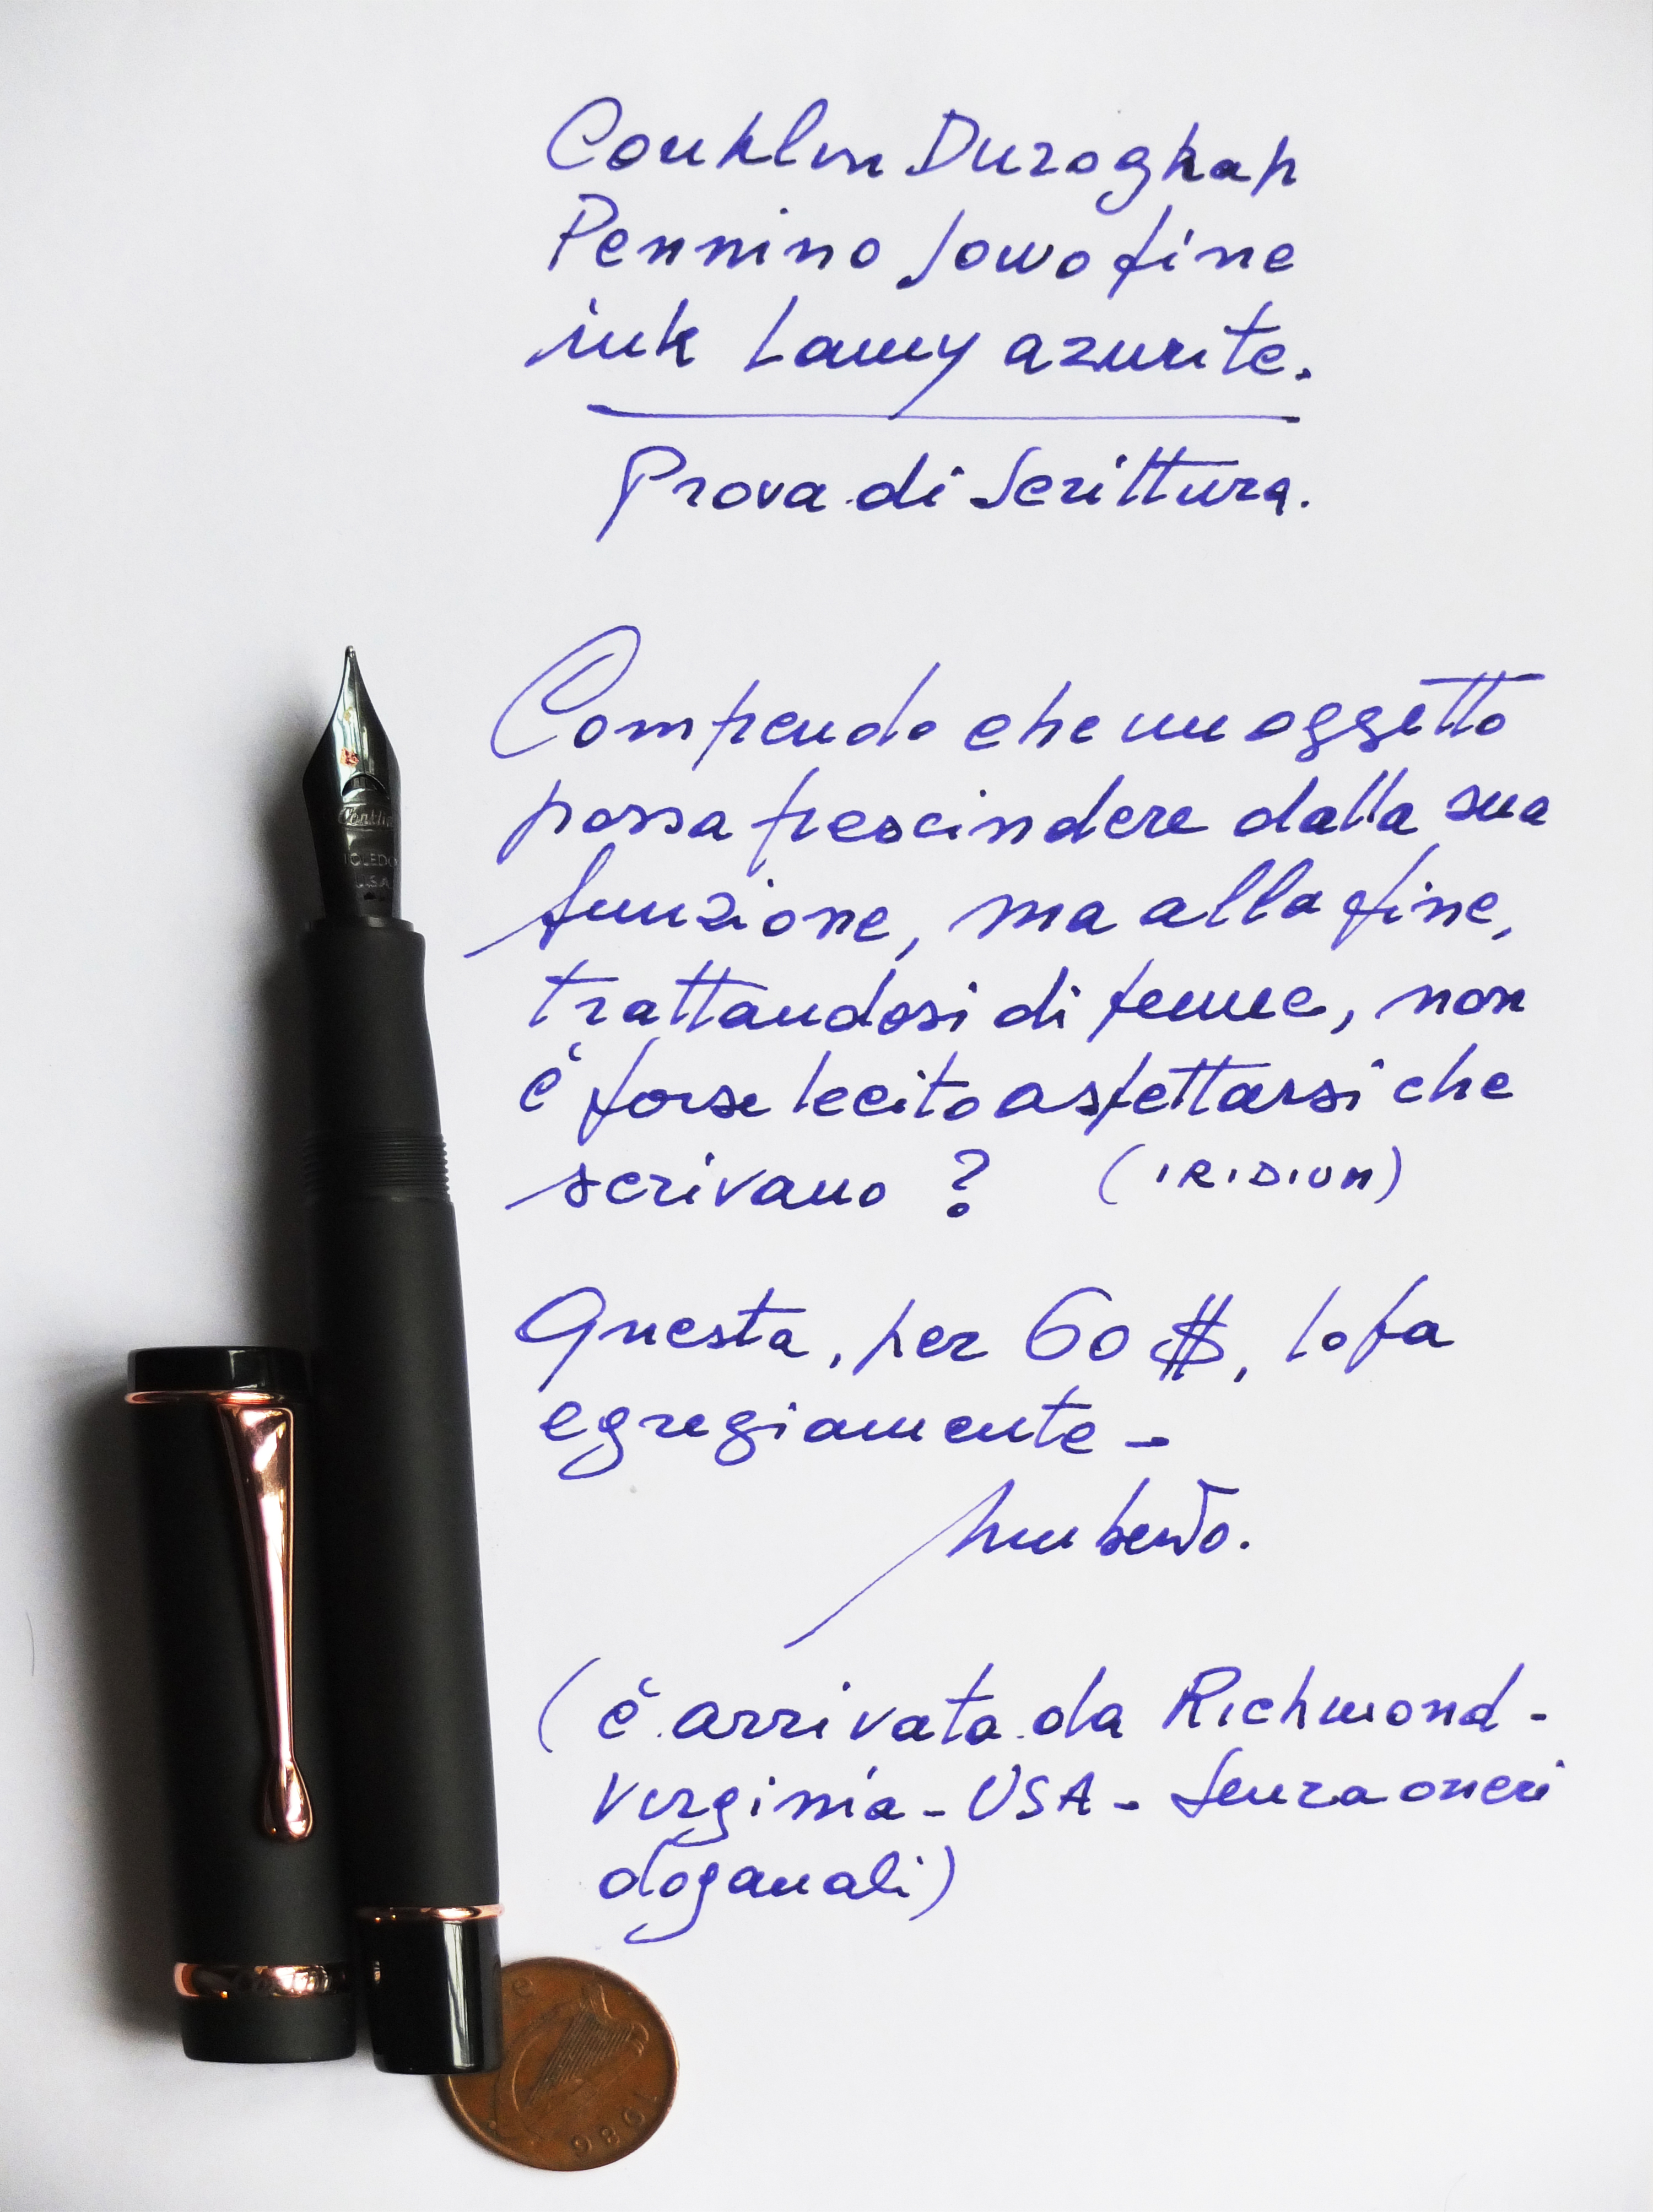 Conklin Duragraph
Pennino Jowo fine
ink Lamy azurite.
Prova di Scrittura.
Comprendo che un oggetto
possa prescindere dalla sua
funzione, ma alla fine,
trattandosi di penne, non
è forse lecito aspettarsi che
scrivano ? (IRIDIUM)
Questa, per 60 $, lo fa
egregiamente -
Humberto.
(è arrivata da Richmond -
Virginia - USA - Senza oneri
doganali)
Conklin
TOLEDO
USA
1986